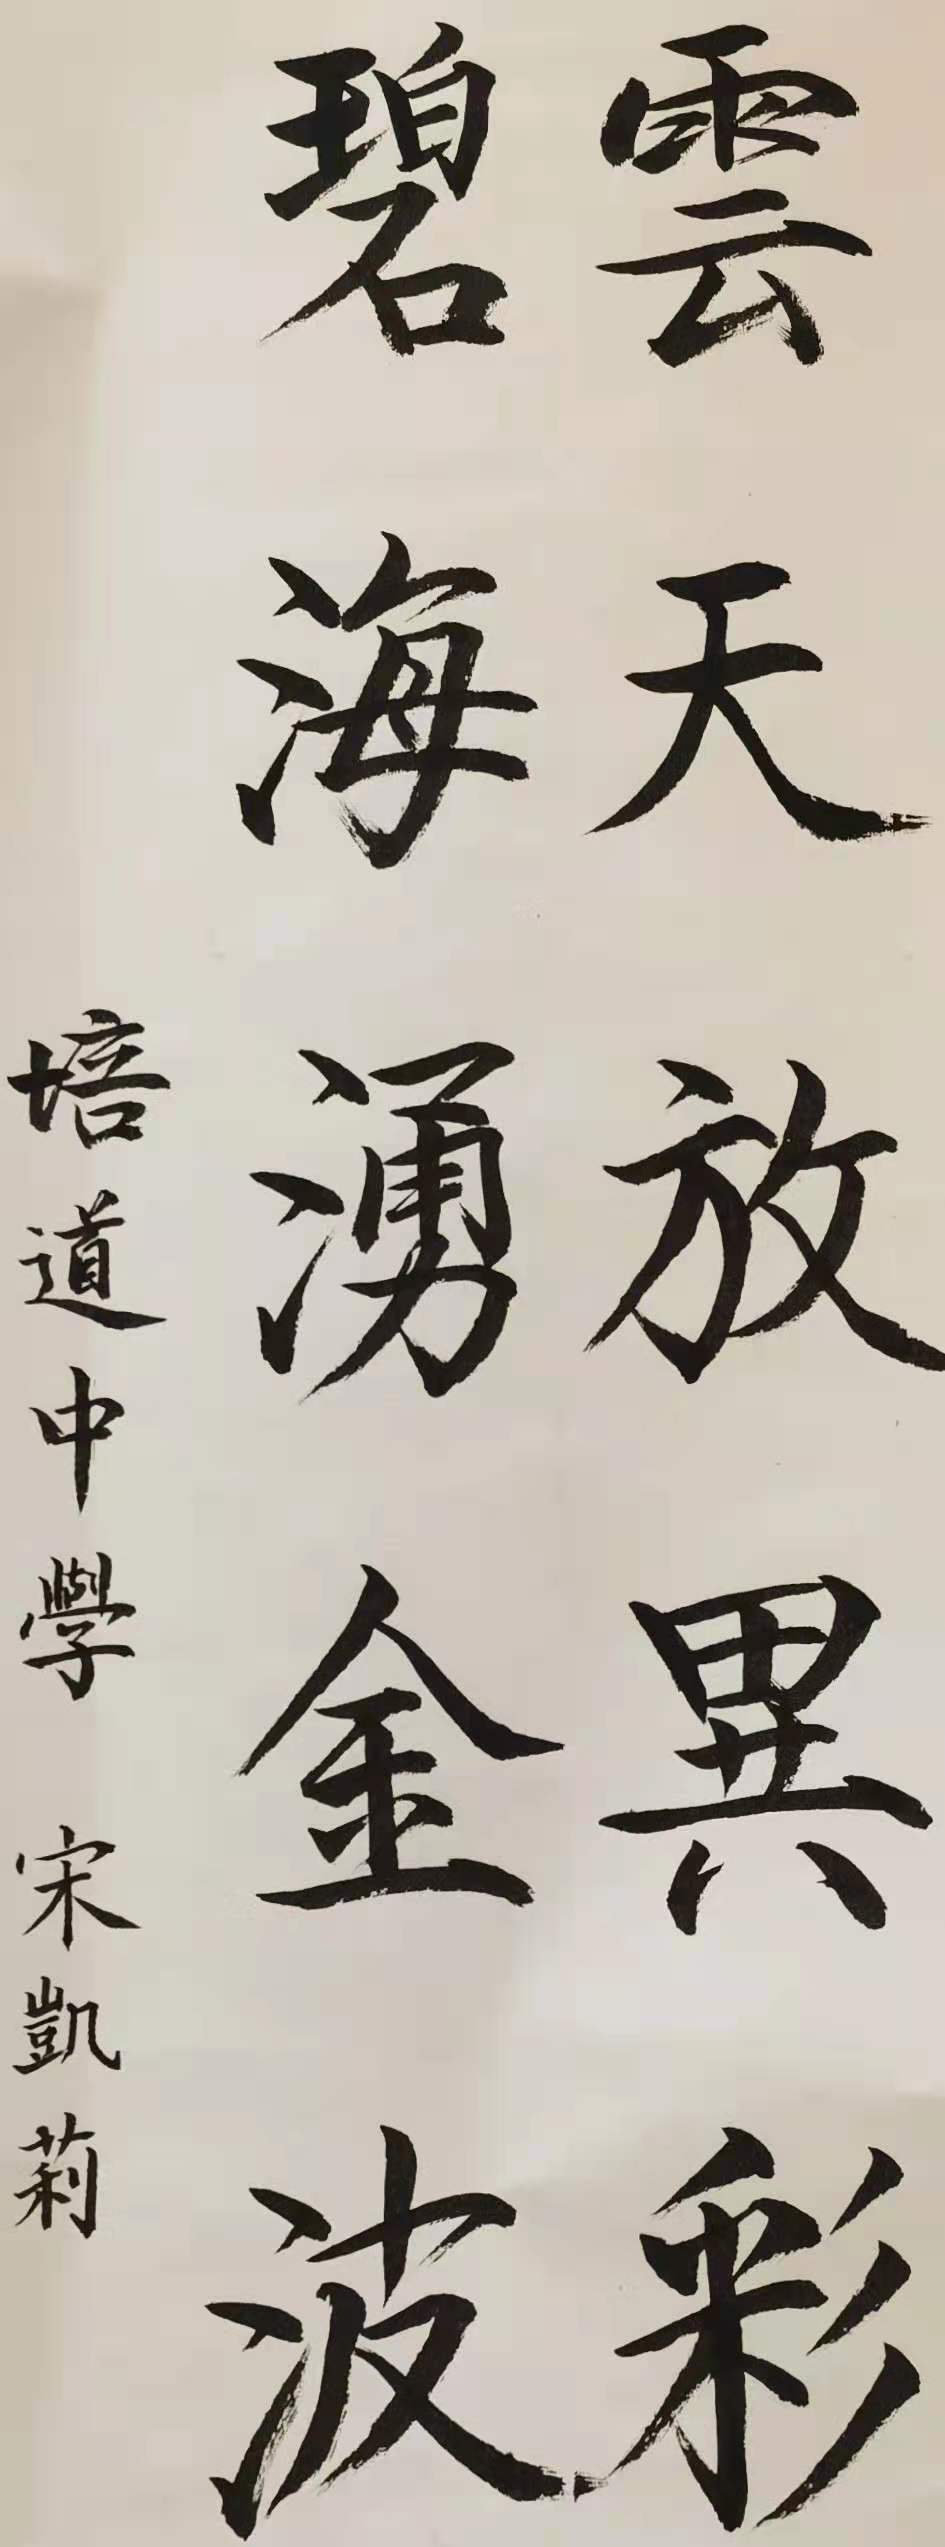 雲天放異彩
碧海湧金波
培道中學 宋凱莉